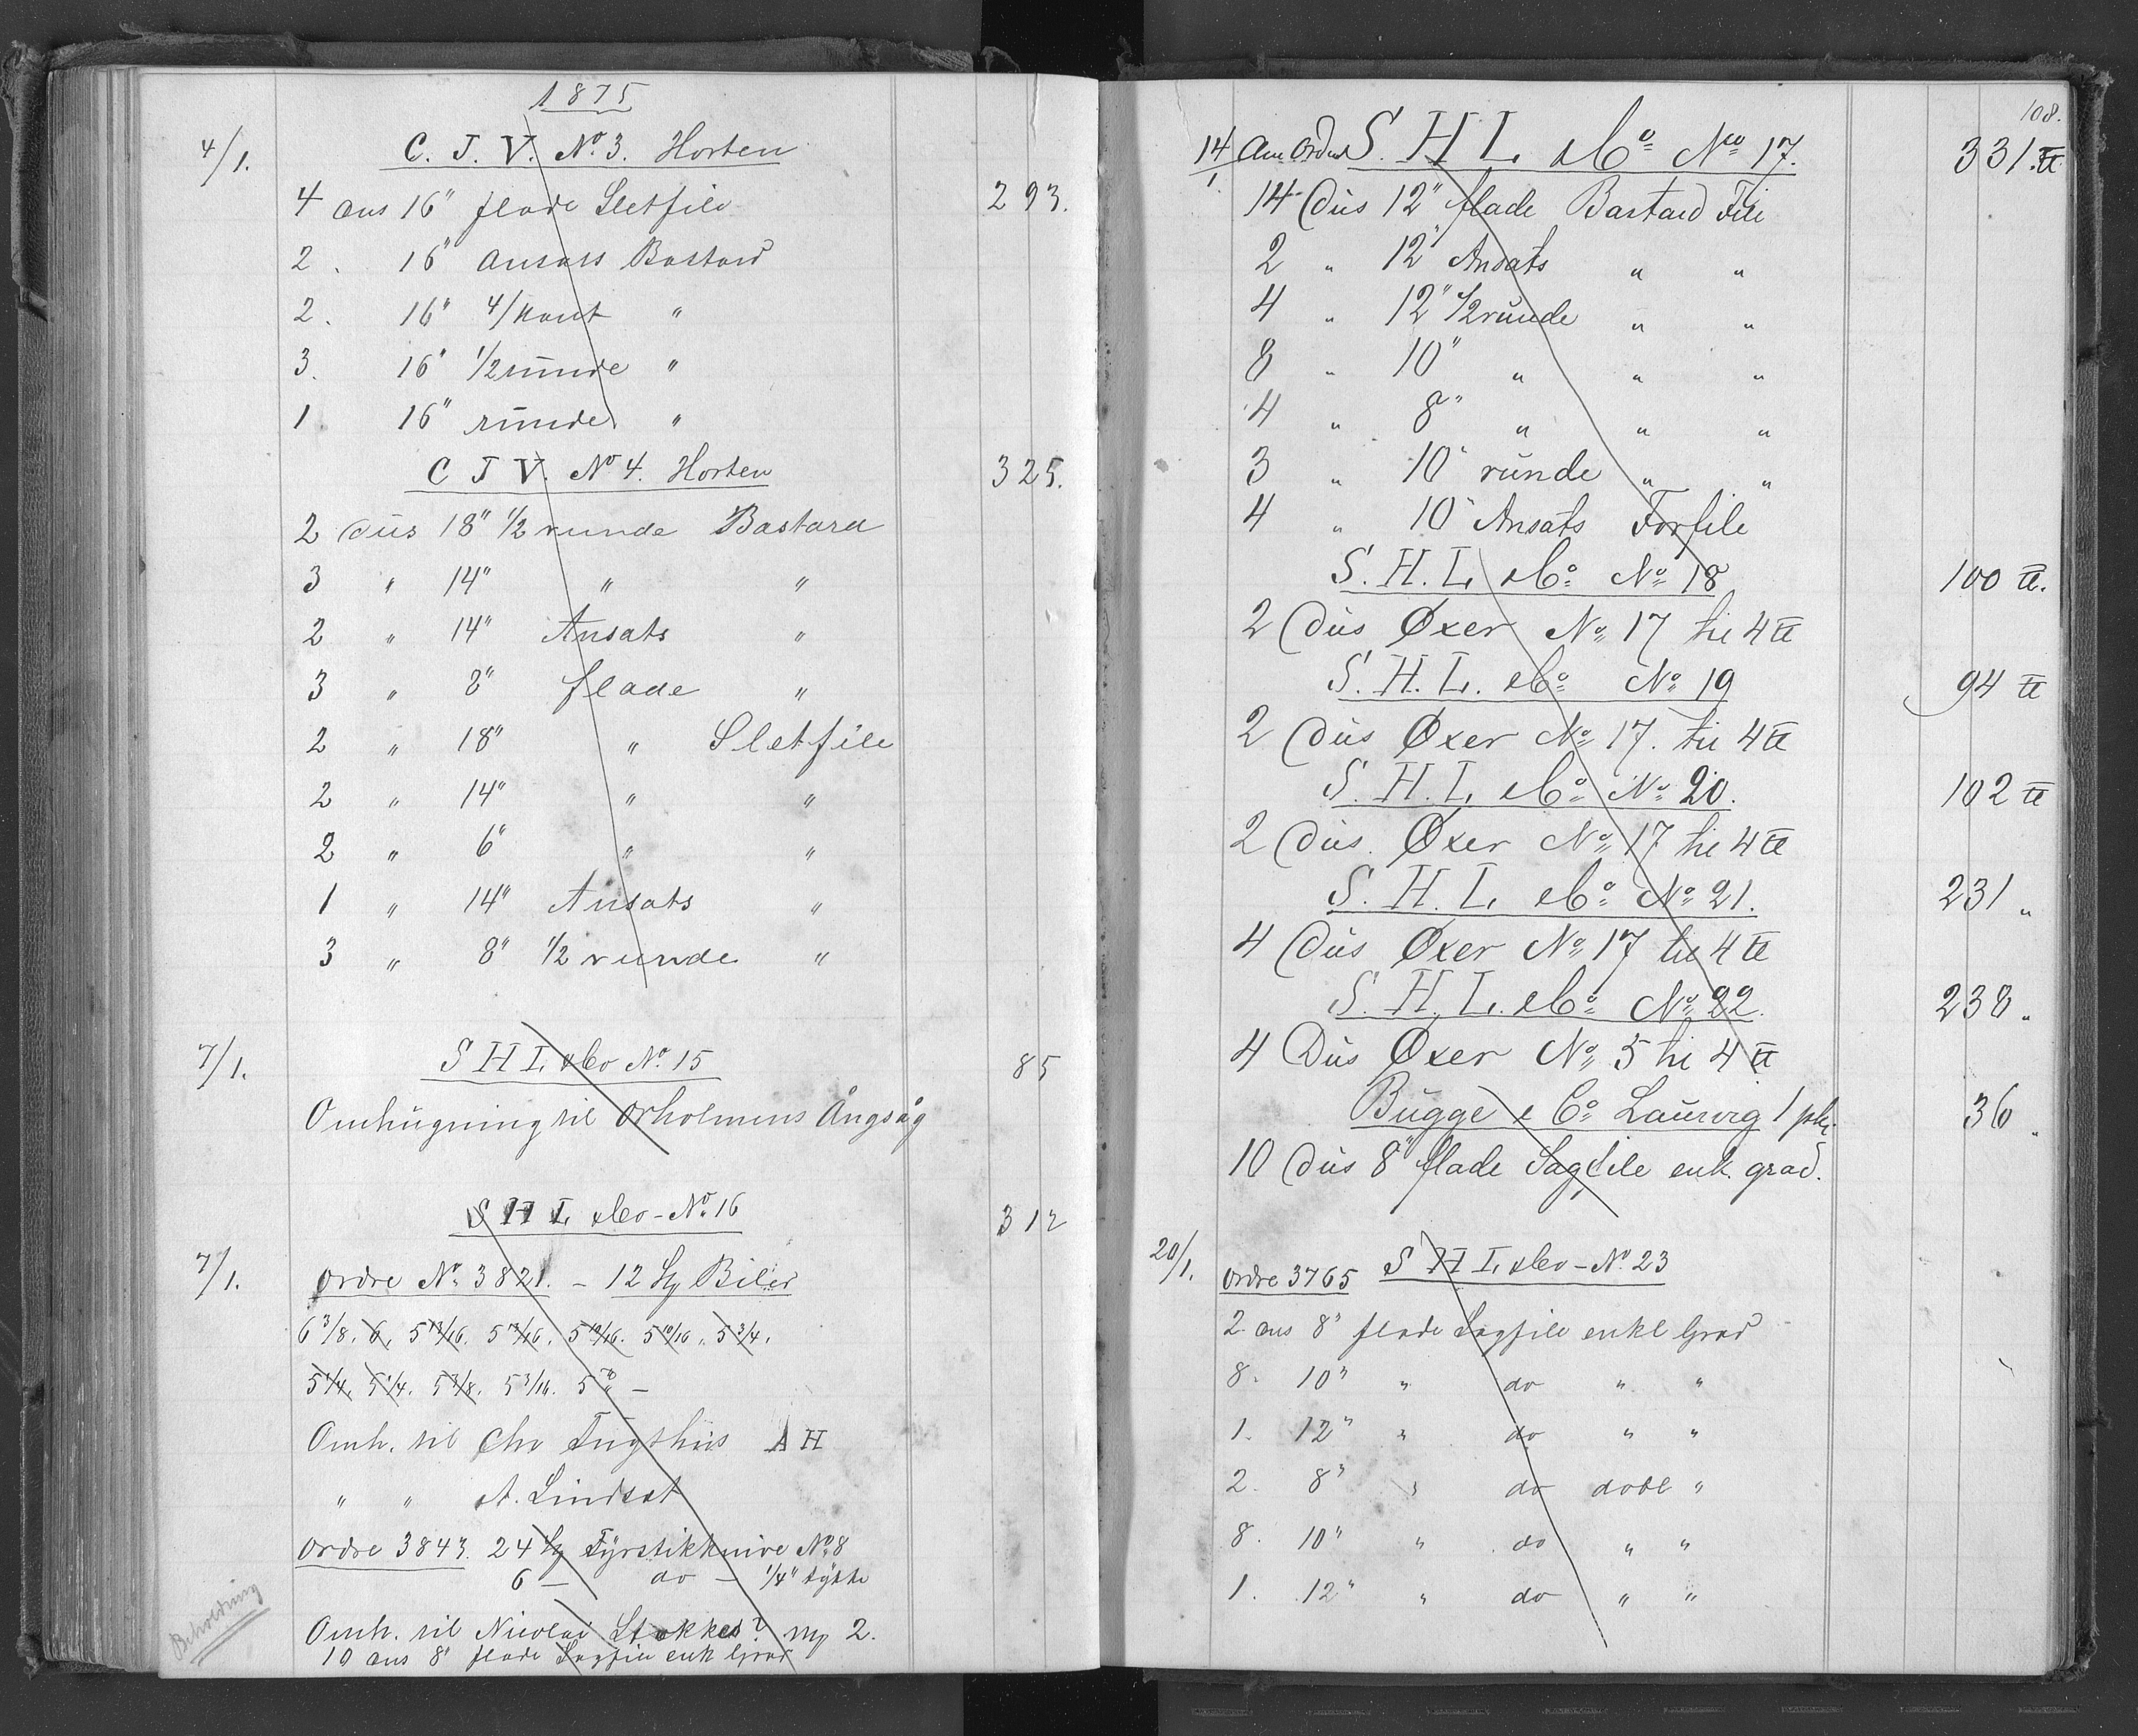 1875
4/1. C. J. V. No. 3. Horten
4 dus 16" flade Sletfile 293.
2 . 16" Ansats Bastard
2 . 16" 4/kant "
3 . 16" 1/2 runde "
1 16" runde "
C J V. No 4. Horten 325.
2 dus 18" 1/2 runde Bastard
3 " 14" " "
2 " 14" Ansats "
3 " 8" flade "
2 " 18" " Sletfile
2 " 14" " "
2 " 6" " "
1 " 14" Ansats "
3 " 8" 1/2 runde "
7/1. S H L & Co No. 15 85
Omhugning til Orholmens Ångsåg
S H L & Co - No. 16 312
7/1. Ordre No. 3821. - 12 Biler
6 3/8. 6. 5 13/16. 5 13/16. 5 10/16. 5 10/16. 5 3/4.
5 1/4. 5 1/4. 5 3/8. 5 3/16. 5 -
Omh. til Chr Tugthus A H
" " A. Lindset
Ordre 3843. 24 Fyrstikknive No. 8
6 - do - 1/4" tykke
Omh. til Nicolai Stokked? 2.
Beholdning
10 dus 8" flade Sagfile enk Grad
108.
14/1 Ordre S. H L. & Co No 17. 331. ℔
14 Dus 12" flade Bastard File
2 " 12" Ansats " "
4 " 12" 1/2 runde " "
8 " 10" " " "
4 " 8" " " "
3 " 10" runde " "
4 " 10" Ansats Forfile
S. H. L. & Co. No. 18 100 ℔.
2 Dus Øxer No. 17 til 4 ℔
S. H. L. & Co. No. 19 94 ℔
2 Dus Øxer No. 17. til 4 ℔
S. H. L. & Co. No. 20. 102 ℔
2 Dus. Øxer No. 17 til 4 ℔
S. H. L. & Co. No. 21. 231 "
4 Dus Øxer No. 17 til 4 ℔
S. H. L. & Co. No. 22. 238 "
4 Dus Øxer No. 5 til 4 ℔
Bugge & Co. Laurvig 1 pk. 36 "
10 Dus 8" flade Sagfile enk. grad.
20/1. Ordre 3765 S H L & Co - No. 23
2 dus 8" flade Sagfile enkl Grad
8 . 10" " do " "
1. 12" " do " "
2. 8" " do dobl "
8. 10" " do " "
1. 12" " do " "